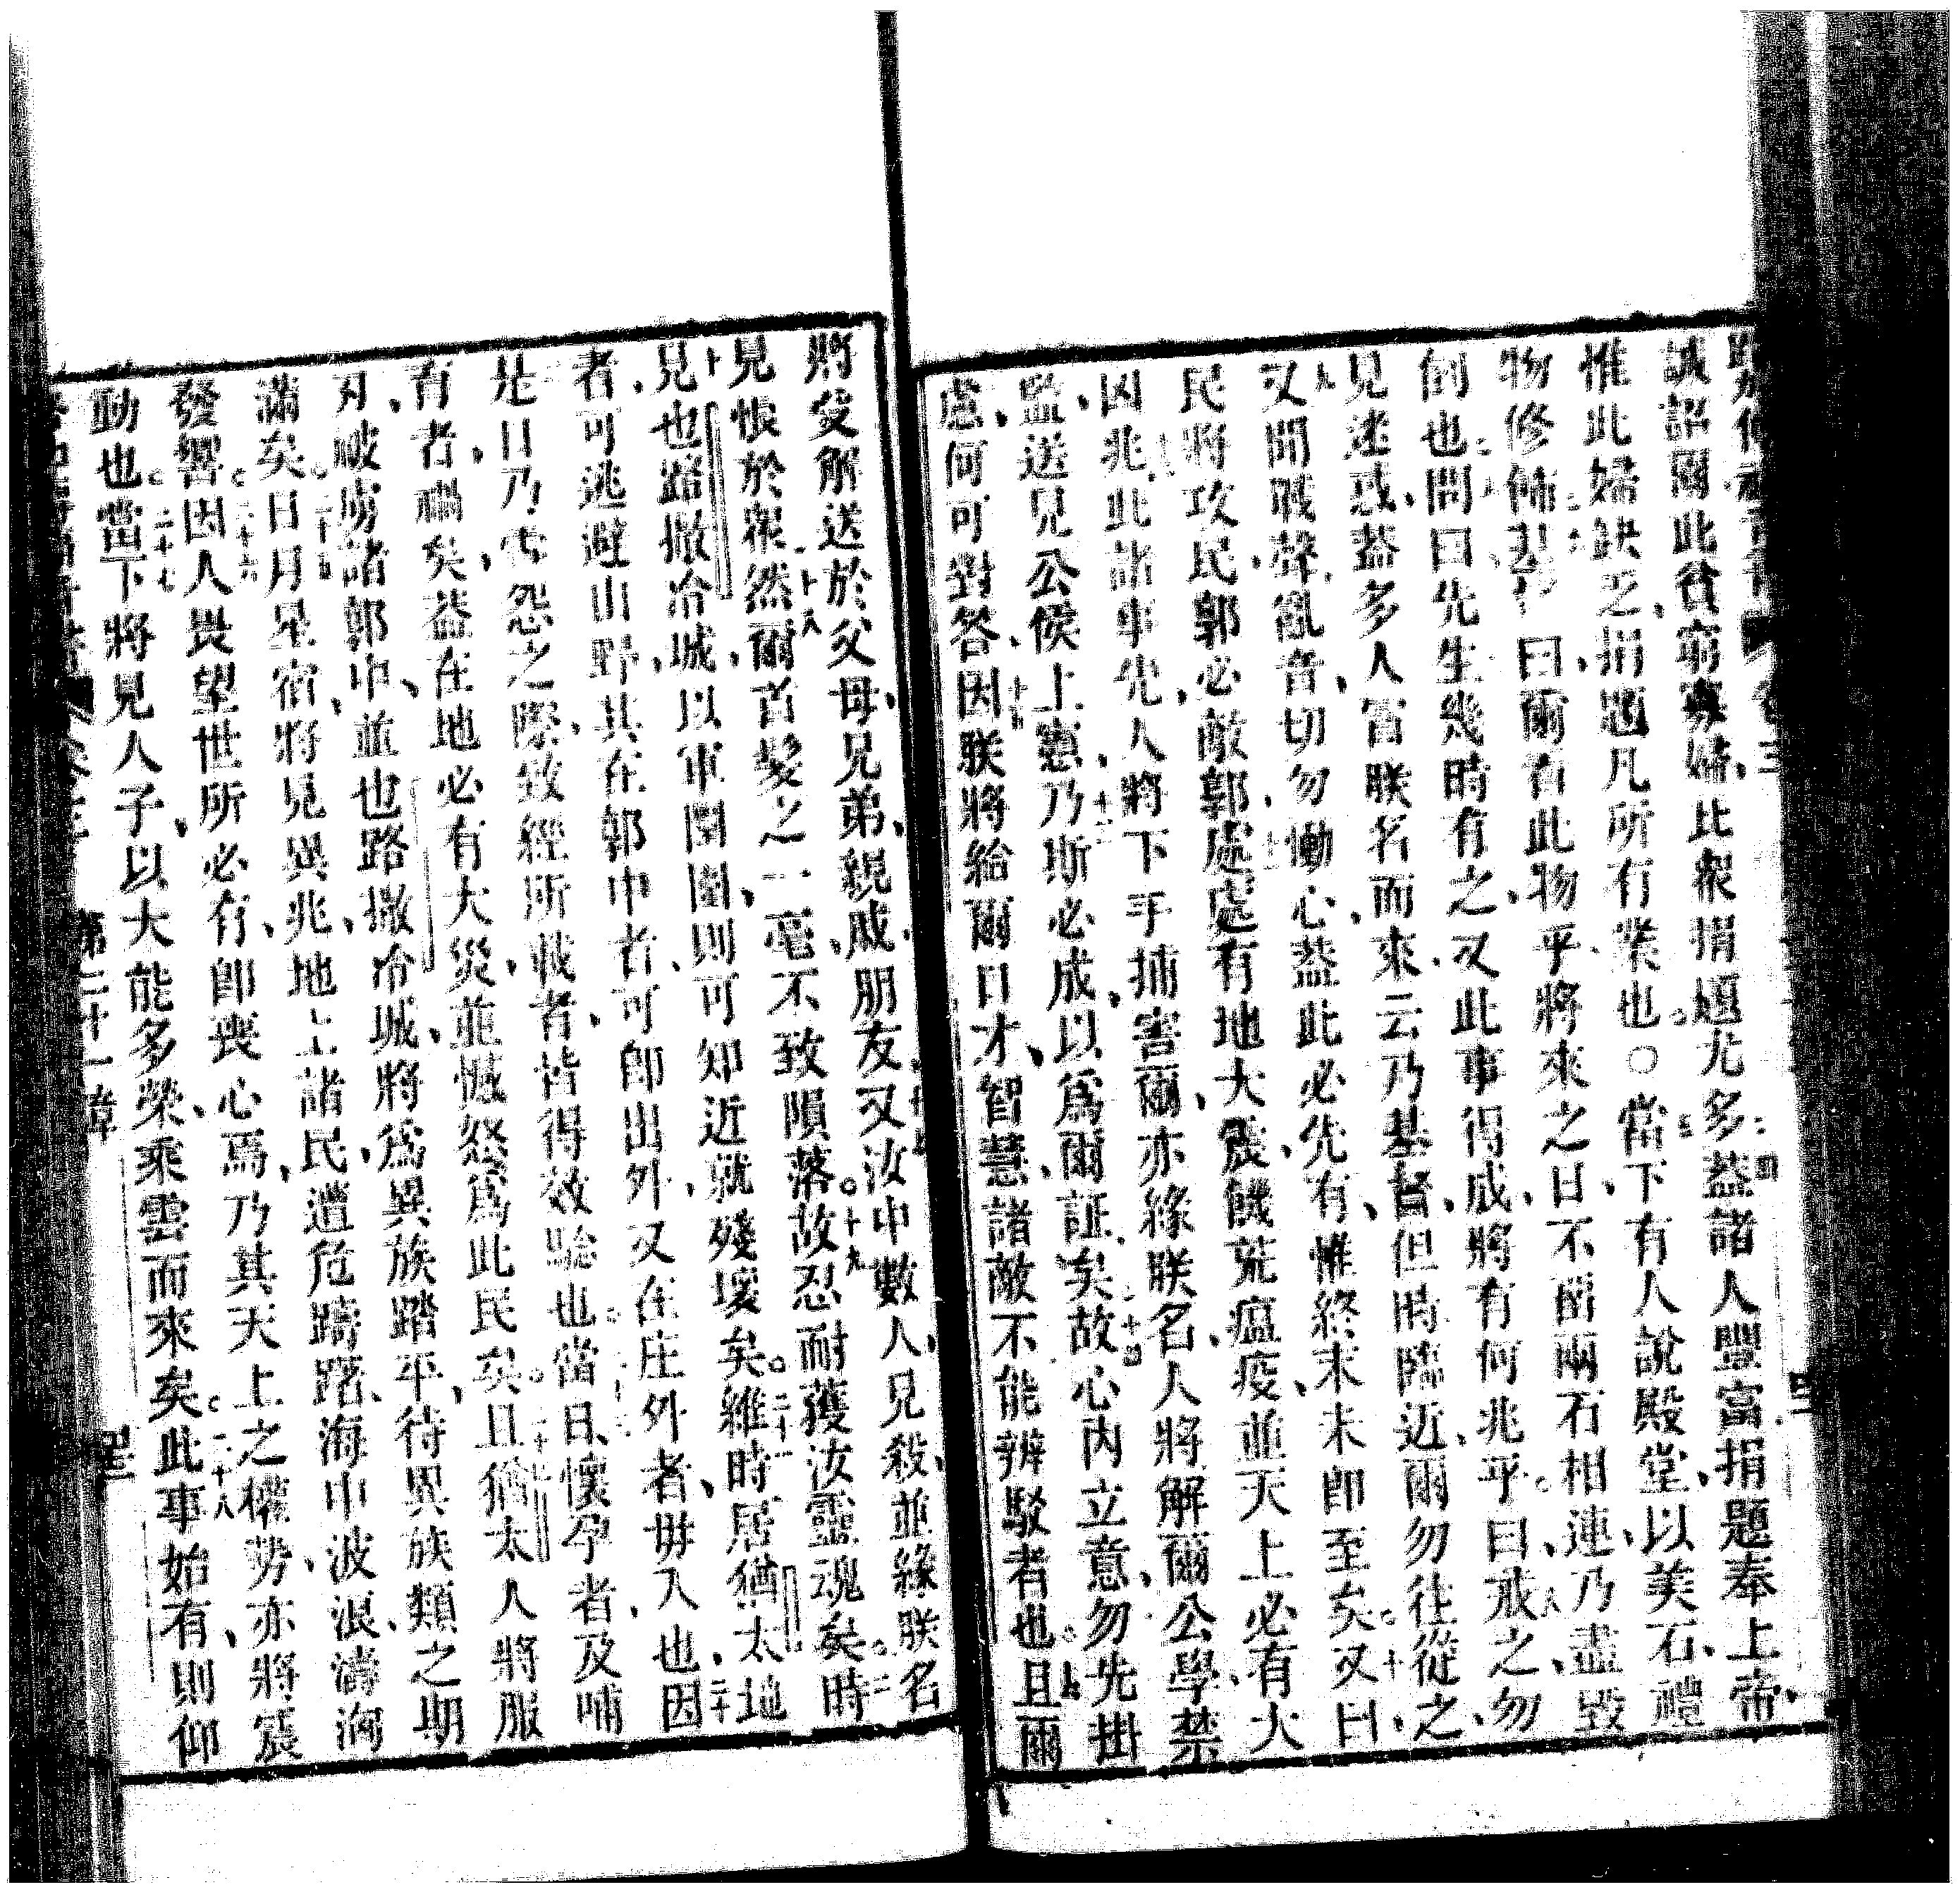 誠詔爾此貧窮寡婦、比衆捐題尤多、葢諸人豐富捐題奉上帝、
惟此婦缺乏、捐題凡所有業也。○當下有人說殿堂、以美石、禮
物修飾、耶穌曰、爾看此物乎、將來之日、不留兩石相連、乃盡毀
倒也。問曰、先生幾時有之、又此事得成、將有何兆乎。曰、戒之、勿
見迷惑、葢多人冒朕名而來、云乃基督、但時臨近、爾勿往從之、
又聞戰聲、亂音、切勿慟心、葢此必先有、惟終末未卽至矣。又曰、
民將攻民、郭必敵郭、處處有地大震、饑荒瘟疫、並天上必有大
凶兆、此諸事先、人將下手捕害爾、亦緣朕名、人將解爾公學、禁
監、送見公侯上憲、乃斯必成、以爲爾証矣。故心內立意、勿先掛
慮、何可對答、因朕將給爾口才、智慧、諸敵不能辨駁者也。且爾
將受解送於父母、兄弟、親戚、朋友、又汝中數人、見殺、並緣朕名
見恨於衆、然爾首髮之一毫、不致隕落。故忍耐獲汝靈魂矣。時
見也路撒冷城、以軍圍圍、則可知近就殘壞矣。維時居猶太地
者、可逃避山野、其在郭中者、可卽出外、又在庄外者、毋入也、因
是日乃雪怨之際、致經所載者、皆得效驗也。當日、懷孕者、及哺
育者、禍矣、葢在地必有大災、並憾怒爲此民矣。且猶太人將服
刃、被虜諸郭中、並也路撒冷城、將爲異族踏平、待異族類之期
滿矣。日月星宿、將見異兆、地上諸民、遭危躊躇、海中波浪濤洶
發響。因人畏望世所必有、卽喪心焉、乃其天上之權勢、亦將震
動也。當下將見人子、以大能多榮、乘雲而來矣。此事始有、則仰
第二十一章